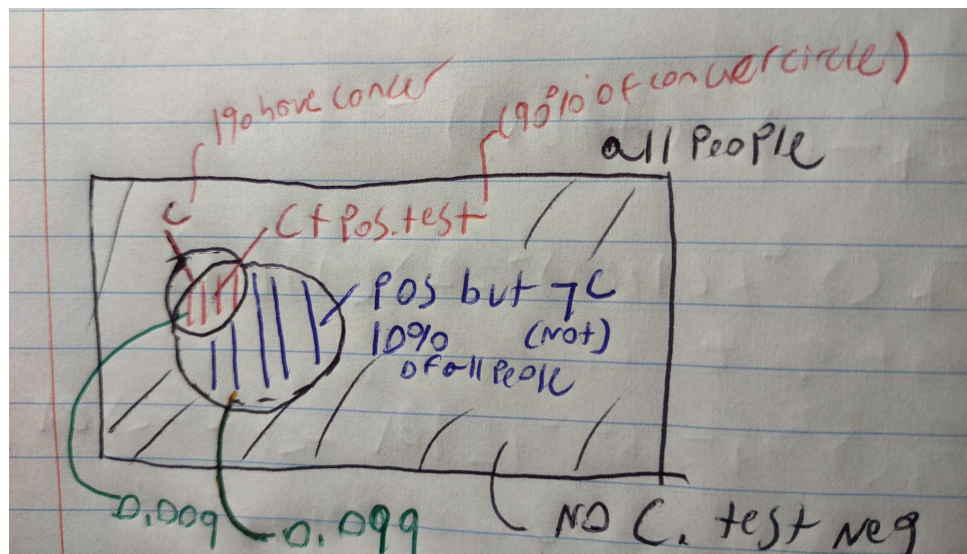 1% have cancer
(90% of cancer circle)
all people
C
C + pos. test
pos but ¬C
10% (not)
of all people
0.009
0.099
NO C. test neg